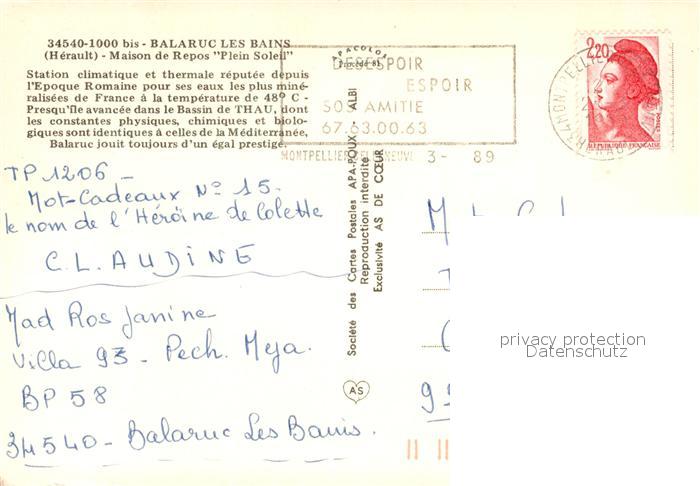 34540-1000 bis - BALARUC LES BAINS
(Hérault) - Maison de Repos "Plein Soleil"
Station climatique et thermale réputée depuis
l'Epoque Romaine pour ses eaux les plus miné-
ralisées de France à la température de 48° C -
Presqu'Ile avancée dans le Bassin de THAU, dont
les constantes physiques, chimiques et biolo-
giques sont identiques à celles de la Méditerranée,
Balaruc jouit toujours d'un égal prestige.
TP 1206 -
Mot-Cadeaux N° 15.
le nom de l'Héroïne de Colette
C.L.AUDINE
Mad Ros Janine
Villa 93 - Pech. Meja.
BP 58
34540 - Balaruc Les Bains.
APACOLOR
DESESPOIR
ESPOIR
SOS AMITIE
67.63.00.63
MONTPELLIER 3- 89
Société des Cartes Postales APA-POUX - ALBI
Reproduction interdite
Exclusivité AS DE CŒUR
AS
2,20
REPUBLIQUE FRANÇAISE
privacy protection
Datenschutz